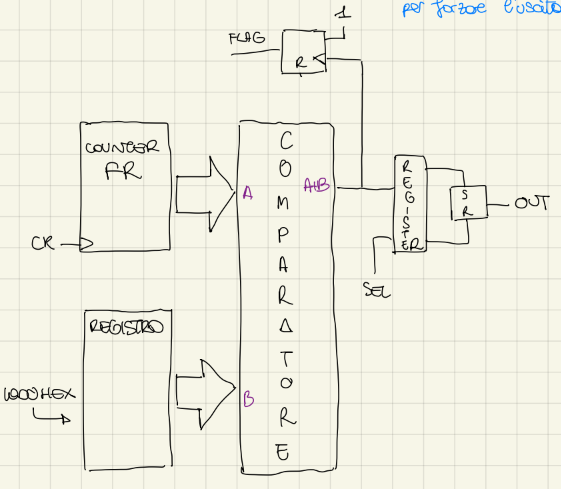 1
per forzare l'uscita
FLAG
R
COUNTER
FR
CK
A
COMPARATORE
A=B
REGISTER
S
R
OUT
SEL
REGISTRO
1000HEX
B